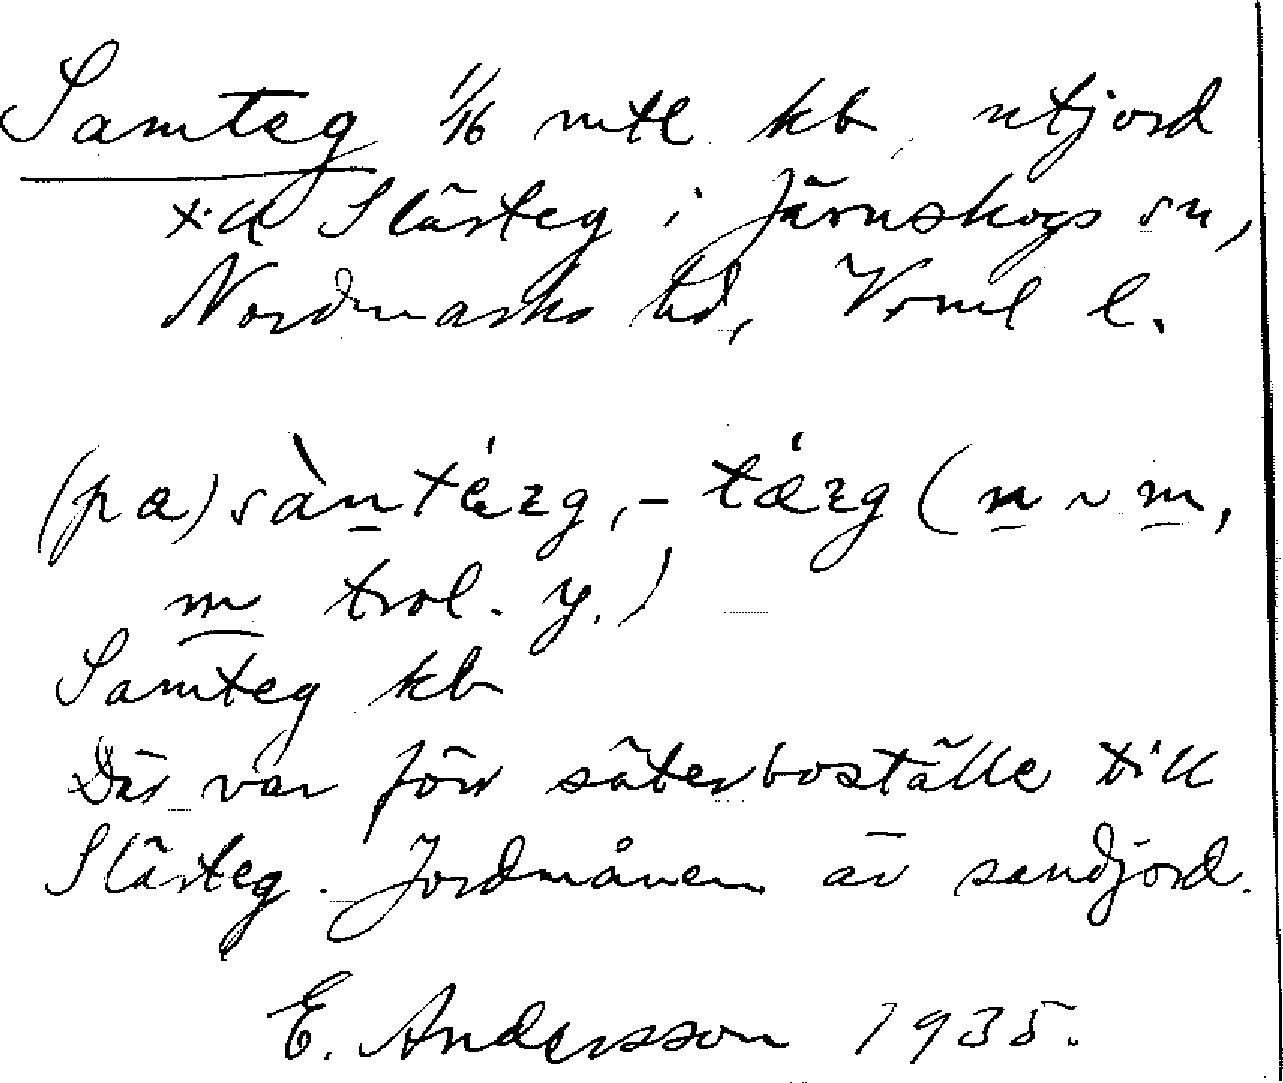 Samteg 1/16 mtl kb, utjord
till Slärteg i Järnskogs sn,
Nordmarks hd, Vrml l.
(pa) sàntég, - tæg (n ~ m,
m trol. y.)
Samteg kb
Där var förr säterboställe till
Slärteg. Jordmånen är sandjord.
E. Andersson 1935.